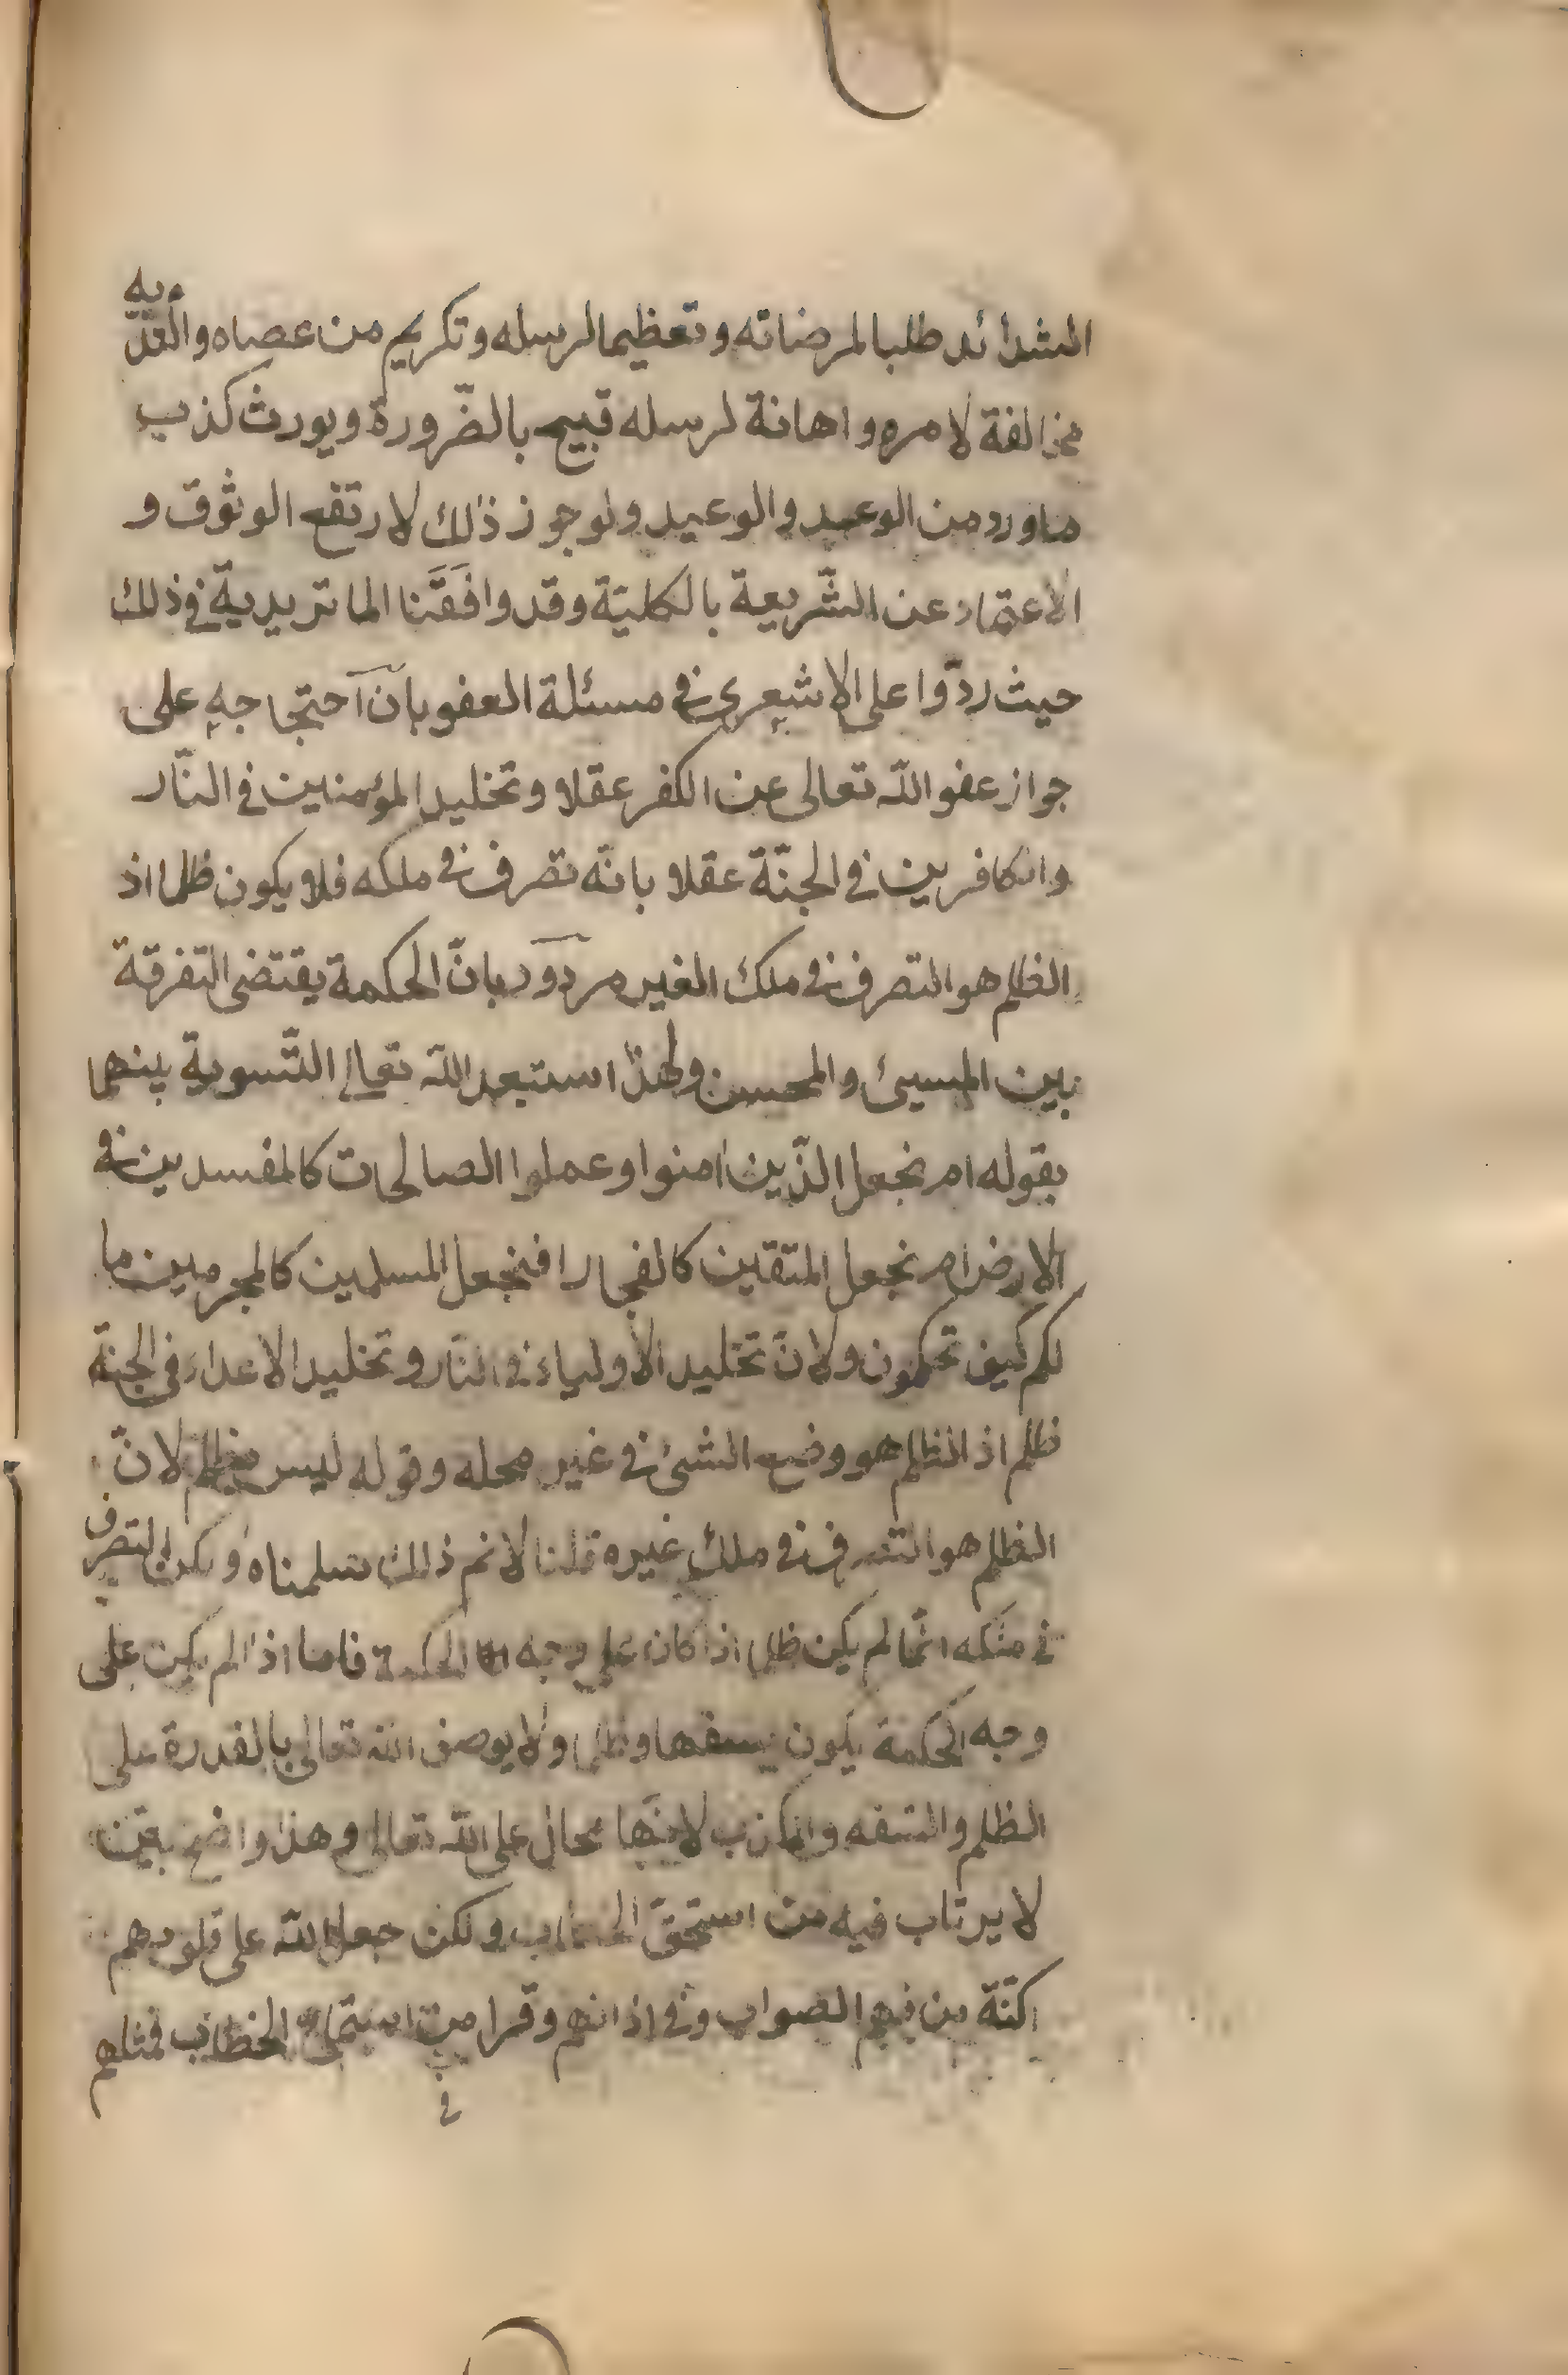 الشدائد طلبا لمرضاته وتعظيما لرسله وتكريم من عصاه و
مخالفة لامره واهانة لرسله قبيح بالضّرورة ويورث كذب
ماورد من الوعيد والوعيد ولو جوز ذلك لارتفع الوثوق و
الاعتماد عن الشّريعة بالكليّة وقد وافَقَنا الماتريديّة في ذلك
حيث ردّوا على الاشعرى في مسئلة العفو بانّ احتجاجه على
جواز عفو اللّه تعالى عن الكفر عقلا وتخليد المؤمنين في النّار
والكافرين في الجنّة عقلا بانّه تصرف في ملكه فلا يكون ظلما اذ
الظلم هو التصرف في ملك الغير مردود بانّ الحكمة يقتضى التفرقة
بين المسيئ والمحسن ولهذا استبعد اللّه تعالى التّسوية بينهما
بقوله ام نجعل الذّين امنوا وعملوا الصالحات كالمفسدين في
الارض ام نجعل المتقين كالفجار افنجعل المسلمين كالمجرمين ما
لكم كيف تحكمون ولانّ تخليد الاولياء في النّار وتخليد الاعداء في الجنّة
ظلم اذ الظلم هو وضع الشئ في غير محله وقوله ليس بظلم لانّ
الظلم هو التصرف في ملك غيره قلنا لانم ذلك سلمناه ولكن التصرف
في ملكه انّما لم يكن ظلما اذا كان على وجه الحكمة فاما اذا لم يكن على
وجه الحكمة يكون سفها وظلما ولا يوصف اللّه تعالى بالقدرة على
الظلم والسفه والكذب لانّها محال على اللّه تعالى وهذا واضح بيّن
لا يرتاب فيه من استحقّ الخطاب ولكن جعل اللّه على قلوبهم
اكنّة من فهم الصواب وفي اذانهم وقرا من استماع الخطاب فمثلهم
في